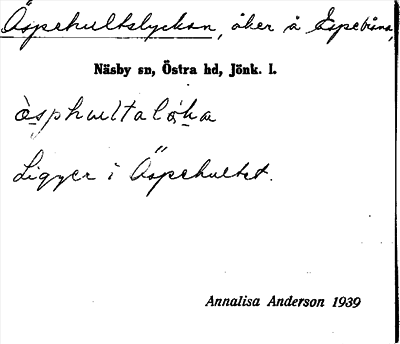 Äspehultslyckan, åker å Espebråna,
Näsby sn, Östra hd, Jönk. l.
èsphultalóka
Ligger i Äspehultet.
Annalisa Anderson 1939